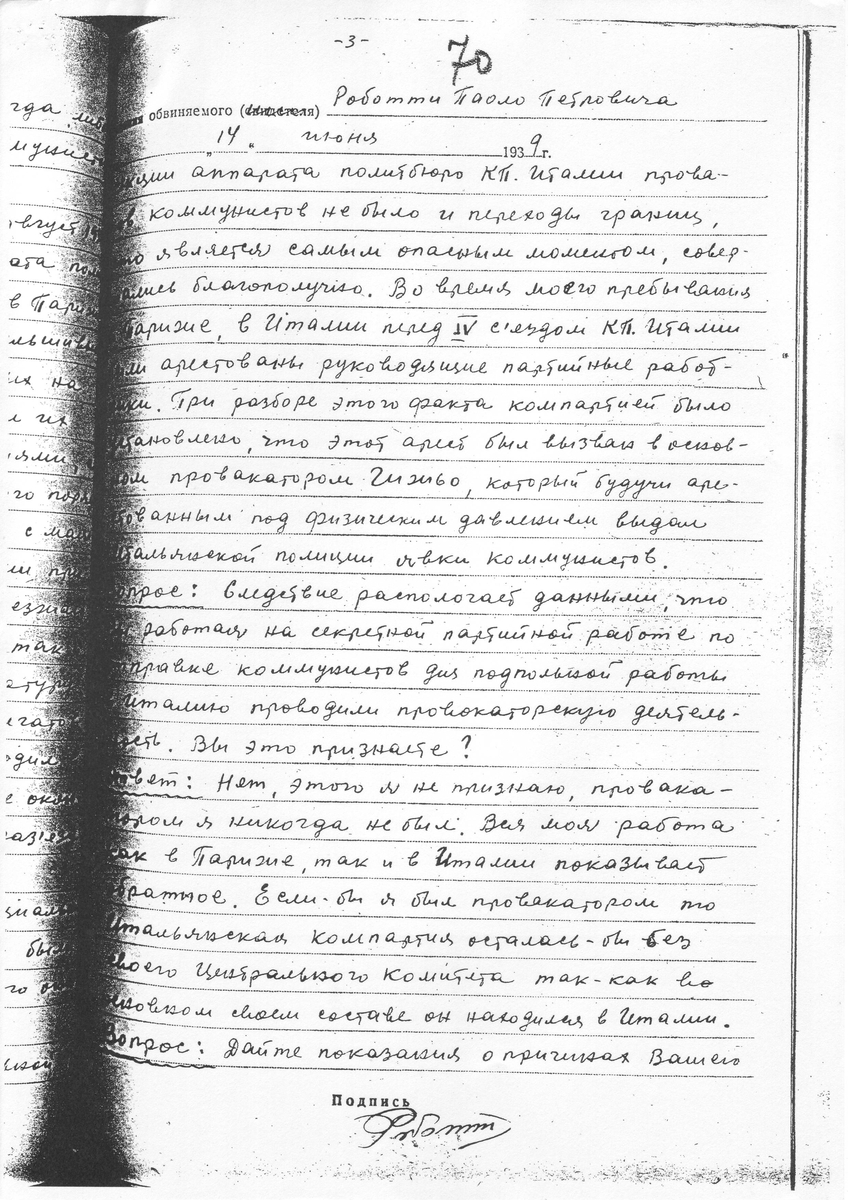 -3-
70
обвиняемого (свидетеля) Роботти Паоло Петровича
„14“ июня 1939 г.
кции аппарата политбюро КП. Италии прова-
ов коммунистов не было и переходы границ,
но является самым опасным моментом, совер-
ались благополучно. Во время моего пребывания
Париже, в Италии перед IV с'ездом КП. Италии
ли арестованы руководящие партийные работ-
ики. При разборе этого факта компартией было
тановлено, что этот арест был вызван в основ-
ом провакатором Гижво, который будучи аре-
тованным под физическим давлением выдал
тальянской полиции явки коммунистов.
опрос: Следствие распологает данными, что
работая на секретной партийной работе по
правке коммунистов для подпольной работы
Италию проводили провокаторскую деятель-
ость. Вы это признаете?
твет: Нет, этого я не признаю, провака-
тором я никогда не был. Вся моя работа
как в Париже, так и в Италии показывает
братное. Если-бы я был провакатором то
Итальянская компартия осталась-бы без
своего Центрального Комитета так-как во
сновном своем составе он находился в Италии.
Вопрос: Дайте показания о причинах Вашего
Подпись
Роботти